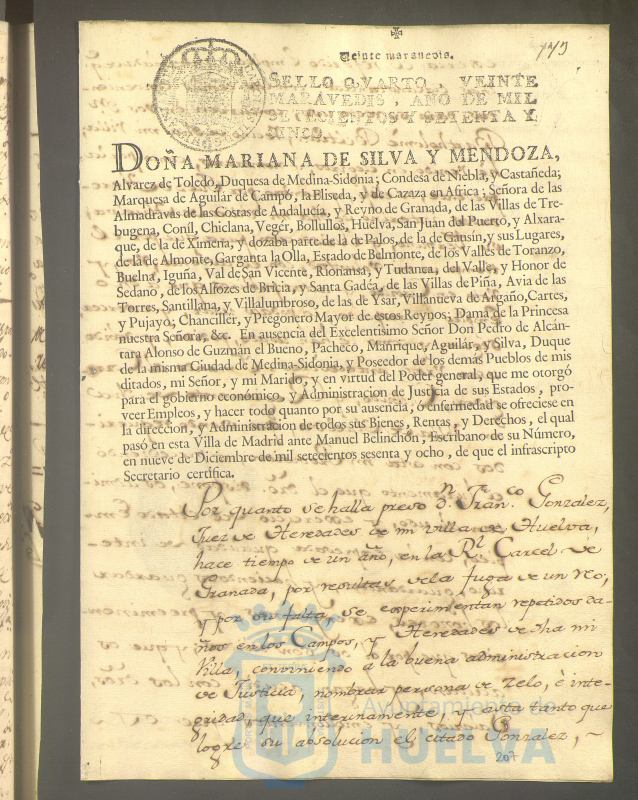 Veinte maravedis.
173
SELLO QVARTO, VEINTE
MARAVEDIS, AÑO DE MIL
SETECIENTOS Y SETENTA Y
CINCO.
DOÑA MARIANA DE SILVA Y MENDOZA,
Alvarez de Toledo, Duquesa de Medina-Sidonia; Condesa de Niebla, y Castañeda;
Marquesa de Aguilar de Campó, la Eliseda, y de Cazaza en Africa; Señora de las
Almadravas de las Costas de Andalucía, y Reyno de Granada, de las Villas de Tre-
bugena, Coníl, Chiclana, Vegér, Bollullos, Huelva, San Juan del Puerto, y Alxara-
que, de la de Ximena, y dozaba parte de la de Palos, de la de Gausin, y sus Lugares,
de la de Almonte, Garganta la Olla, Estado de Belmonte, de los Valles de Toranzo,
Buelna, Iguña, Val de San Vicente, Rionansa, y Tudanca, del Valle, y Honor de
Sedano, de los Alfozes de Bricia, y Santa Gadéa, de las Villas de Piña, Avia de las
Torres, Santillana, y Villalumbroso, de las de Ysar, Villanueva de Argaño, Cartes,
y Pujayo; Chancillér, y Pregonero Mayor de estos Reynos; Dama de la Princesa
nuestra Señora, &c. En ausencia del Excelentisimo Señor Don Pedro de Alcán-
tara Alonso de Guzmán el Bueno, Pacheco, Manrique, Aguilár, y Silva, Duque
de la misma Ciudad de Medina-Sidonia, y Poseedor de los demás Pueblos de mis
ditados, mi Señor, y mi Marido, y en virtud del Poder general, que me otorgó
para el gobierno económico, y Administracion de Justicia de sus Estados, pro-
veer Empleos, y hacer todo quanto por su ausencia, ó enfermedad se ofreciese en
la direccion, y Administracion de todos sus Bienes, Rentas, y Derechos, el qual
pasó en esta Villa de Madrid ante Manuel Belinchon, Escribano de su Número,
en nueve de Diciembre de mil setecientos sesenta y ocho, de que el infrascripto
Secretario certifica.
Por quanto se halla preso Dn. Franco. Gonzalez,
Juez de Heredades de mi villa de Huelva,
hace tiempo de un año, en la Rl. Carcel de
Granada, por resultas de la fuga de un reo,
y por su falta, se experimentan repetidos da-
ños en los Campos, y Heredades de dha mi
Villa, conviniendo a la buena administracion
de Justicia, nombrar persona de zelo, è inte-
gridad, que interinamente, y hasta tanto que
logre su absolucion el citado Gonzalez, ~
207
Ayuntamiento de
HUELVA